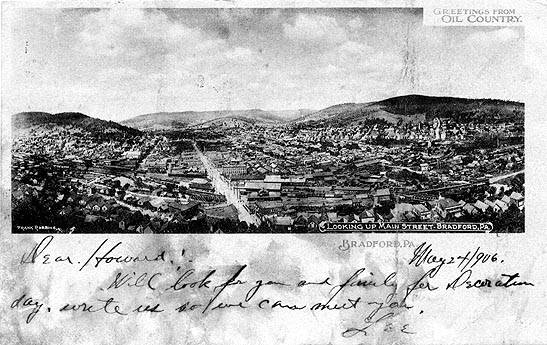 GREETINGS FROM
OIL COUNTRY.
FRANK ROBBINS
LOOKING UP MAIN STREET-BRADFORD, PA.
BRADFORD, PA.
Dear Howard:
May 24/906.
Will look for you and family for Decoration
day, write us so we can meet you.
Lee